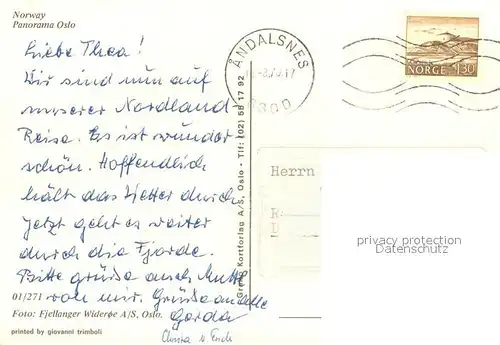 Norway
Panorama Oslo
Liebe Thea!
Wir sind nun auf
unserer Nordland
Reise. Es ist wunder
schön. Hoffendlich
hält das Wetter durch
jetzt geht es weiter
durch die Fjorde.
Bitte grüße auch Mutti
von mir. Grüße an alle
Gerda
01/271
Foto: Fjellanger Widerøe A/S, Oslo.
printed by giovanni trimboli
Kortforlag A/S, Oslo - Tlf: (02) 58 17 92
ÅNDALSNES
NORGE 130
Herrn
privacy protection
Datenschutz